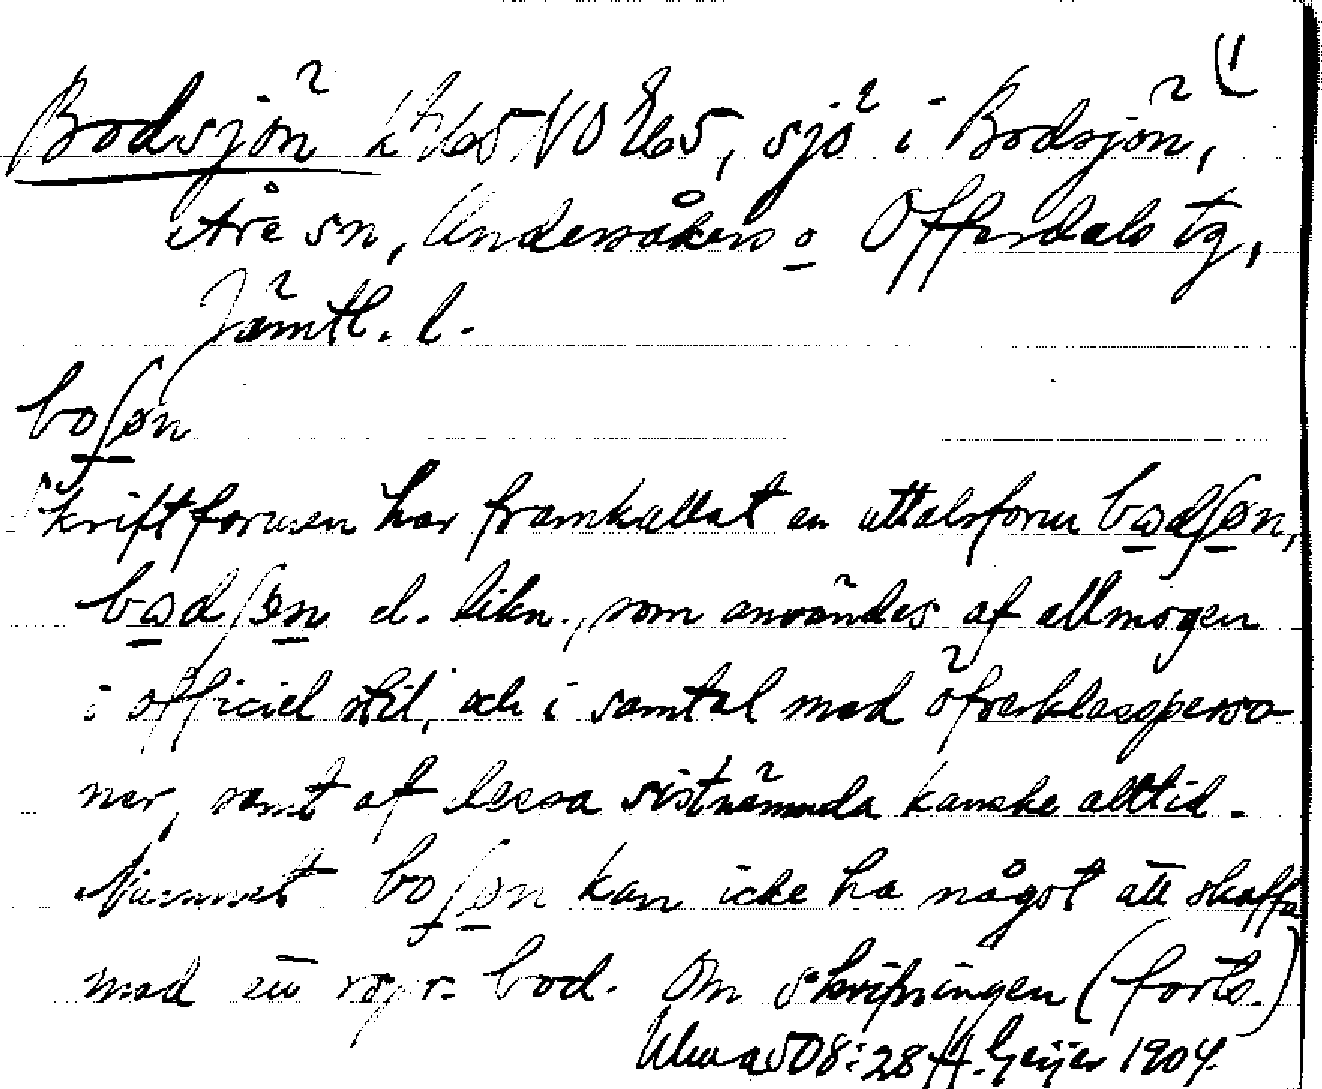 Bodsjön sjö i Bodsjön, (1
Åre sn, Undersåkers o Offerdals tg,
Jämtl. l.
boʃøn
Skriftformen har framkallat en uttalsform bɷdʃøn,
bɷdʃøn el. likn., som användes af allmogen
i officiel stil, och i samtal med öfverklassperso-
ner, samt af dessa sistnämnda kanske alltid.
Namnet boʃøn kan icke ha något att skaffa
med ett bod. Om skrifningen (forts.)
508:28 H. Geijer 1904.